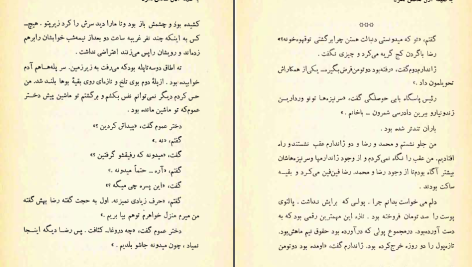 گفتم، «تو که میدونستی دنبالت هستن چرا برگشتی توقهوه‌خونه؟»
رضا با گردن کج گریه می‌کرد و چیزی نگفت.
ژاندارم دوم گفت، «رفته بود دو تومن قرض بگیره، یکی از همکاراش
تحویلمون داد.»
رئیس پاسگاه با بی حوصلگی گفت، «سرنیزه‌ها نونو وردارین
زندونیارو ببرین دادرسی شمرون - با خانم.»
باران تندتر شده بود.
من جلو نشستم و محمد و رضا و دو ژاندارم عقب نشستند و راه
افتادیم. من عقب را نگاه نمی‌کردم و از وجود ژاندارمها و سرنیزه‌هاشان
بیشتر آگاه بودم تا از وجود رضا و محمد. رضا فین‌فین می‌کرد و بقیه
ساکت بودند.
دلم می خواست بدانم چرا. پولی که برایش نداشت. پالتوی
پوست را سد تومان فروخته بود. تازه این مهمترین رقمی بود که به
دست آورده بود. در مجموع پولی که درآورده بود حقوق نیم ماهش بود.
تازه پول را دو روزه خرج کرده بود. ژاندارم گفت، «اومده بود دو تومن
کشیده بود و چشمش باز بود و تا دارا دید سرش را کرد زیر پتو. هیچ‌ـ
کس به اینکه چند نفر غریبه ساعت دو بعداز نیمه‌شب خوابشان را برهم
زده‌اند و رویشان را پس می‌زنند اعتراضی نداشت.
ته اطاق دوسه تا پله بود که می‌رفت به زیرزمین. سر پله‌ها هم آدم
خوابیده بود. از پلۀ دوم بوی تلخ و تازه‌ای روی بقیۀ بوها بلند شد. من
حس کردم دیگر نمی‌توانم نفس بکشم و برگشتم تو ماشین پیش دختر
عمو که تو ماشین مانده بود.
دختر عموم گفت، «پیداش کردین؟»
گفتم، «نه.»
گفت، «میدونه که رفیقشو گرفتین؟»
گفتم، «آره - حتماً میدونه.»
گفت، «این پسره چی میگه؟»
گفتم، «حرف زیادی نمیزنه. اول به حجت گفته رضا بهش گفته
من میرم منزل خواهرم توهم بیا بریم.»
دختر عموم گفت، «چه دروغا. کثافت. پس رضا دیگه اینجا
نمیاد، چون میدونه جاشو بلدیم.»